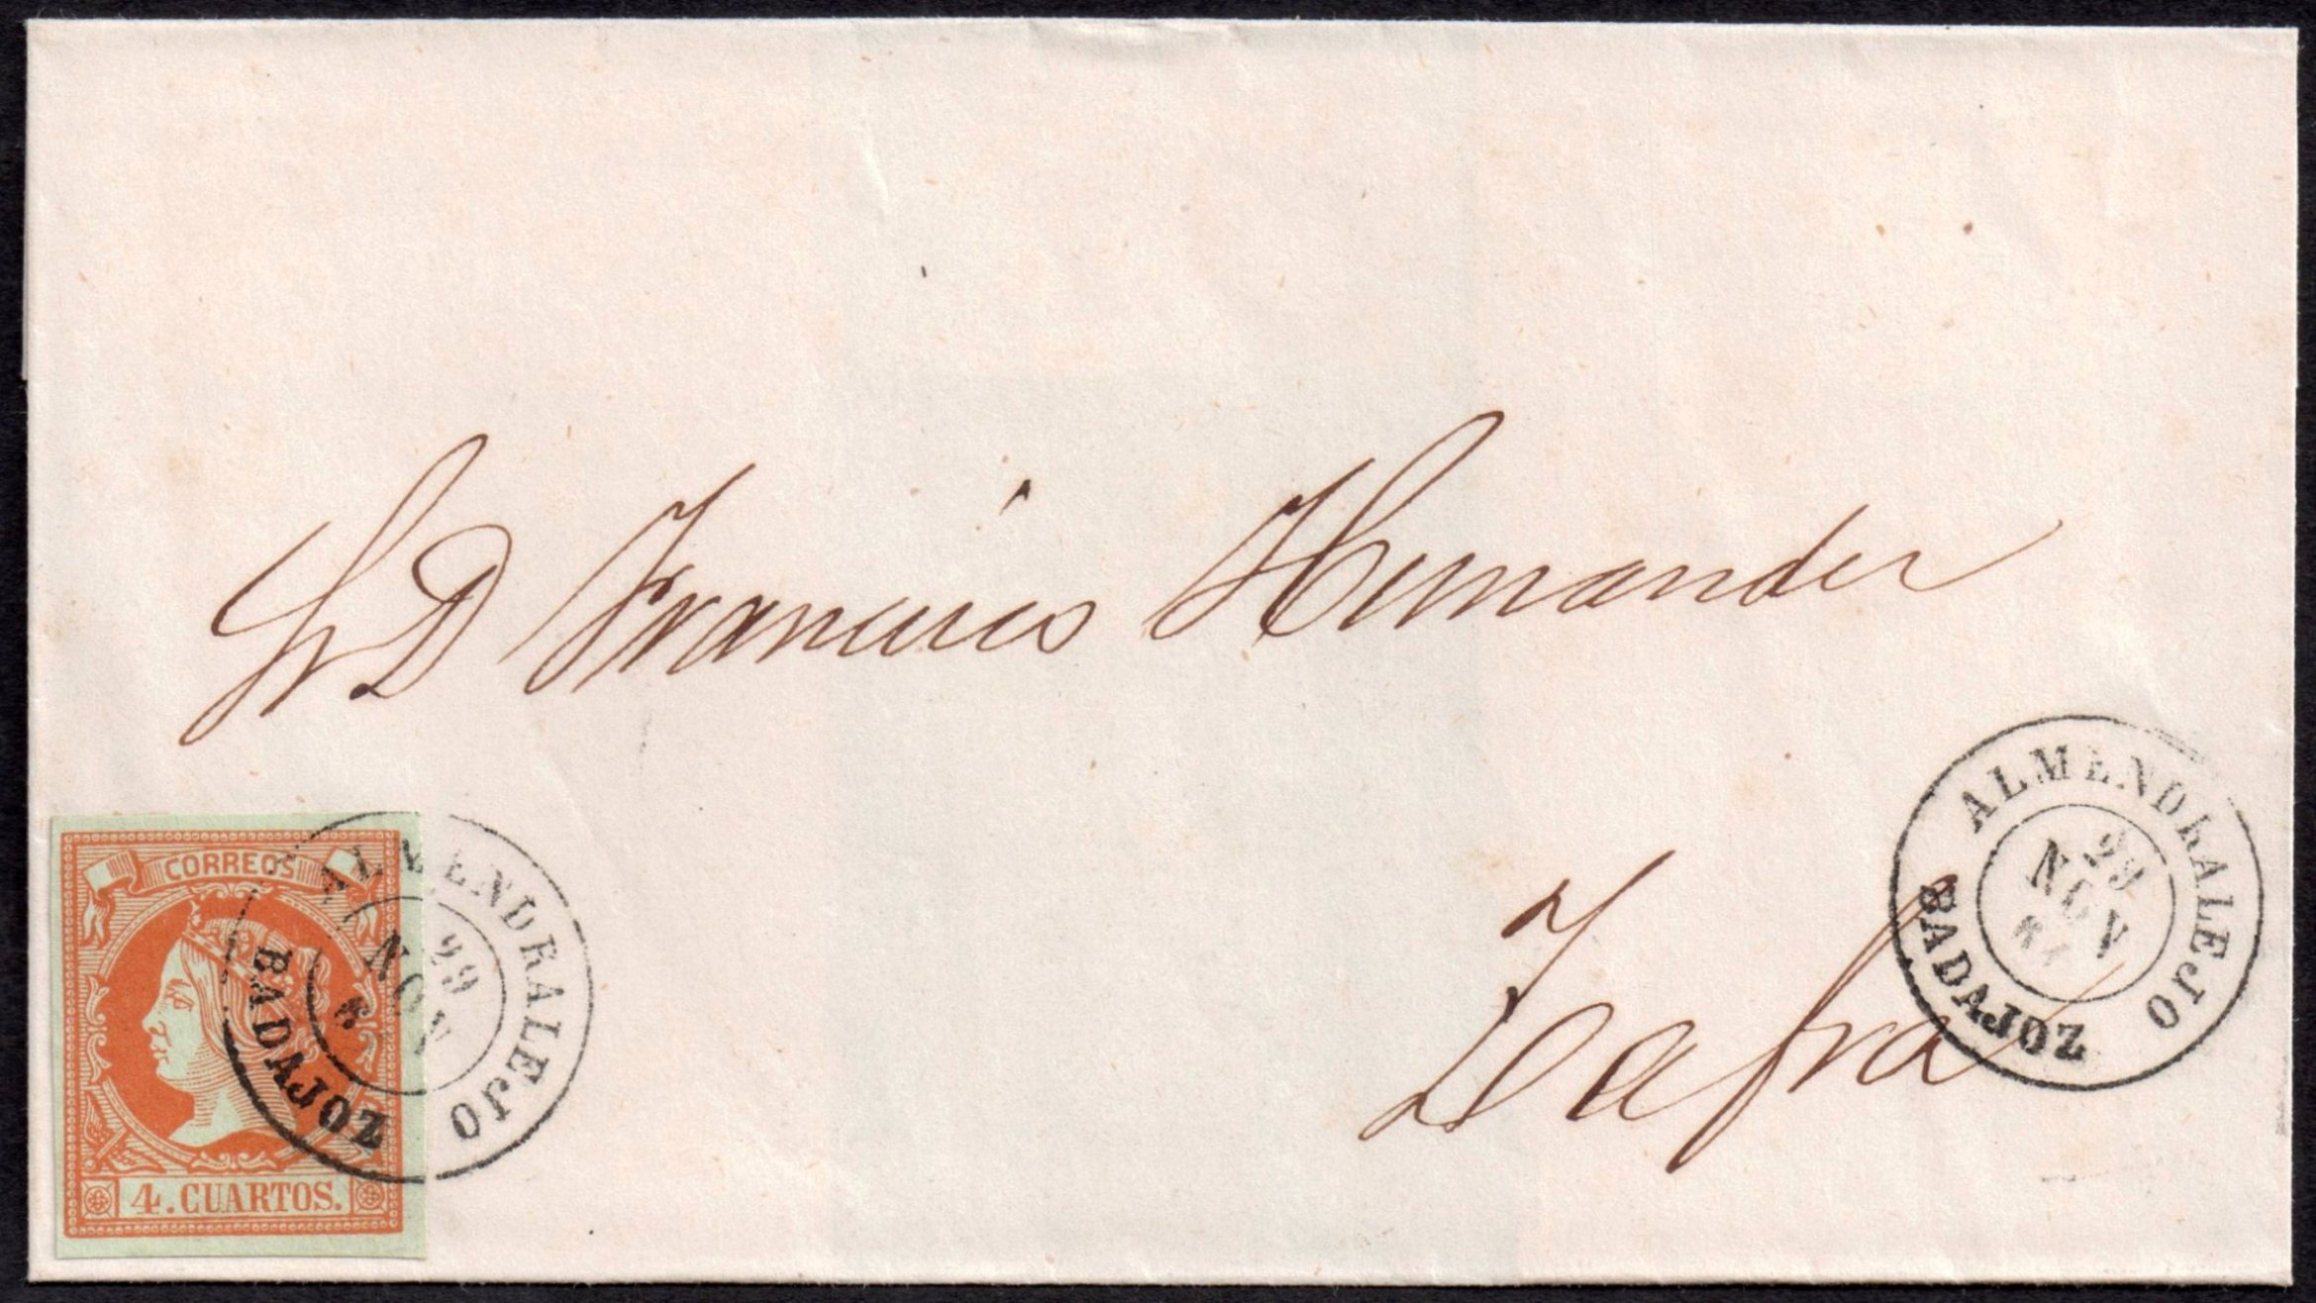 Sr D Francisco Hernandez
Zafra
CORREOS
4. CUARTOS.
ALMENDRALEJO
29
NOV
BADAJOZ
ALMENDRALEJO
29
NOV
BADAJOZ